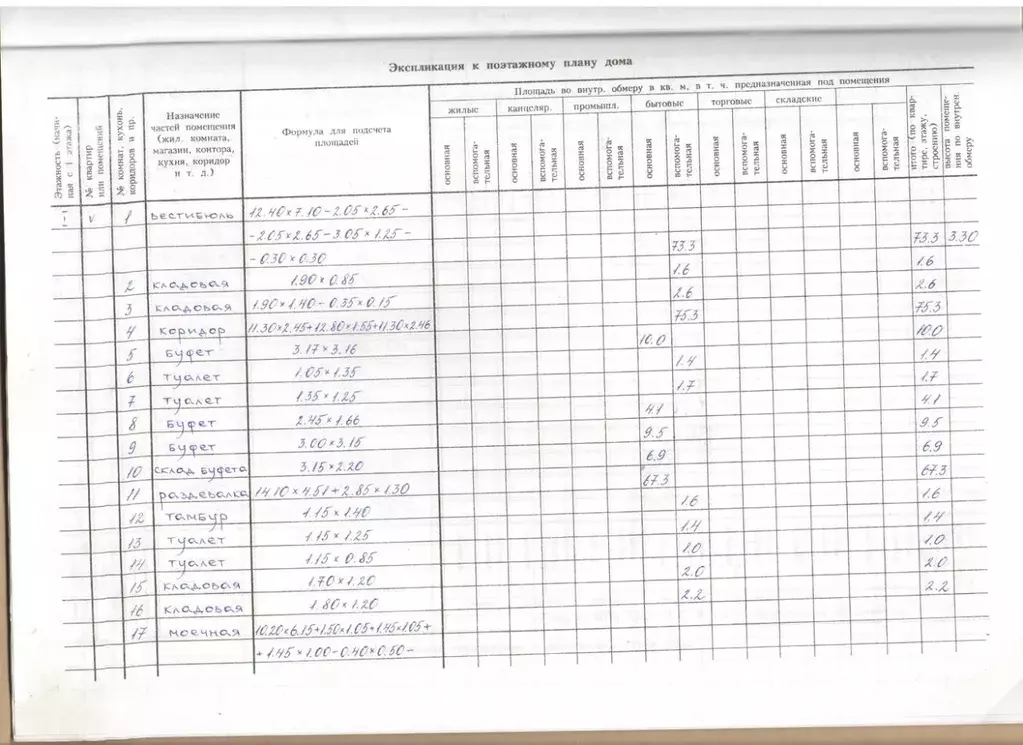 Экспликация к поэтажному плану дома
Этажность (начиная с 1 этажа)
№ квартир или помещений
№ комнат, кухонь, коридоров и пр.
Назначение частей помещения (жил. комната, магазин, контора, кухня, коридор и т. д.)
Формула для подсчета площадей
Площадь во внутр. обмеру в кв. м, в т. ч. предназначенная под помещения
жилые канцеляр. промышл. бытовые торговые складские
основная вспомогательная основная вспомогательная основная вспомогательная основная вспомогательная основная вспомогательная основная вспомогательная основная вспомогательная
итого (по квартире, этажу, строению)
высота помещения по внутрен. обмеру
1-1 V 1 вестибюль 12.40×7.10-2.05×2.65-
-2.05×2.65-3.05×1.25- 73.3 73.3 3.30
-0.30×0.30
2 кладовая 1.90×0.85 1.6 1.6
3 кладовая 1.90×1.40-0.35×0.15 2.6 2.6
4 коридор 11.30×2.45+12.80×1.55+11.30×2.46 75.3 75.3
5 Буфет 3.17×3.16 10.0 10.0
6 туалет 1.05×1.35 1.4 1.4
7 туалет 1.35×1.25 1.7 1.7
8 Буфет 2.45×1.66 4.1 4.1
9 Буфет 3.00×3.15 9.5 9.5
10 склад буфета 3.15×2.20 6.9 6.9
11 раздевалка 14.10×4.51+2.85×1.30 67.3 67.3
12 тамбур 1.15×1.40 1.6 1.6
13 туалет 1.15×1.25 1.4 1.4
14 туалет 1.15×0.85 1.0 1.0
15 кладовая 1.70×1.20 2.0 2.0
16 кладовая 1.80×1.20 2.2 2.2
17 моечная 10.20×6.15+1.50×1.05+1.45×1.05+
+1.45×1.00-0.40×0.50-